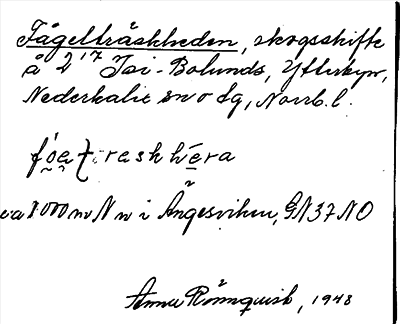 Fågelträskheden, skogsskifte
å 2 17 Isi-Bolunds, Ytterbyn,
Nederkalix sn o dg, Norrb. l.
fóatraskhèra
ca 8000 m N n i Ängesviken, GN37NO
Anna Rönnquist, 1948